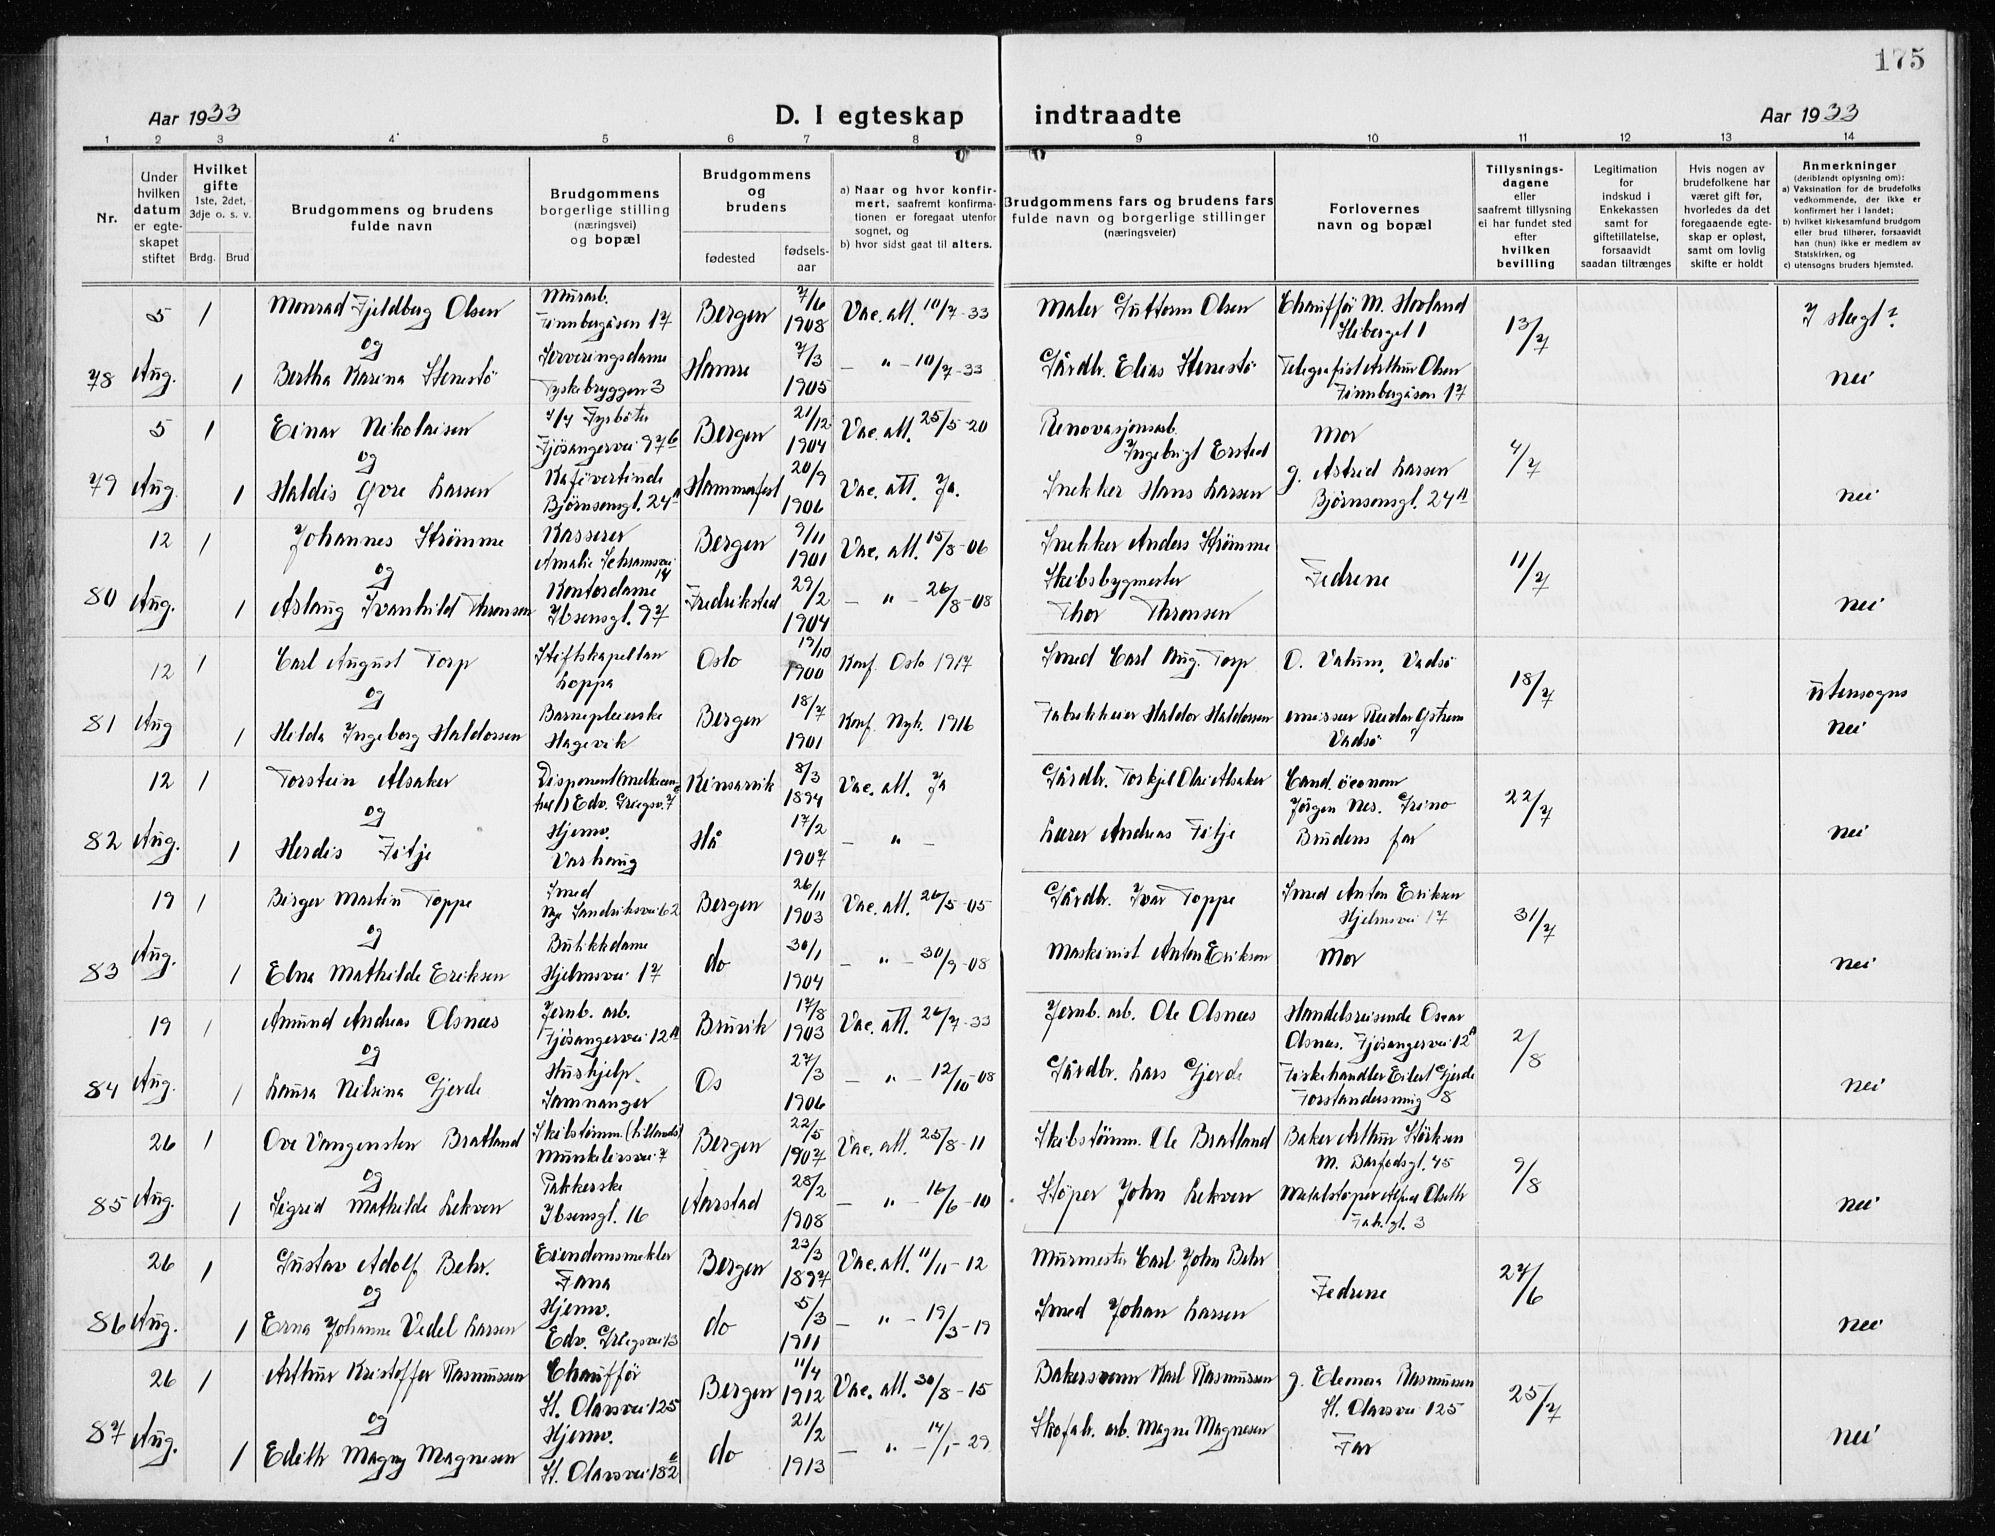 175
Aar 1933
D. I egteskap indtraadte
Aar 1933
1 2 3 4 5 6 7 8 9 10 11 12 13 14
Nr.
Under hvilken datum er egteskapet stiftet
Hvilket gifte 1ste, 2det, 3dje o. s. v.
Brdg. Brud
Brudgommens og brudens fulde navn
Brudgommens borgerlige stilling (næringsvei) og bopæl
Brudgommens og brudens
fødested
fødsels-aar
a) Naar og hvor konfirmert, saafremt konfirmationen er foregaat utenfor sognet, og
b) hvor sidst gaat til alters.
Brudgommens fars og brudens fars fulde navn og borgerlige stillinger (næringsveier)
Forlovernes navn og bopæl
Tillysnings-dagene eller saafremt tillysning ei har fundet sted efter hvilken bevilling
Legitimation for indskud i Enkekassen samt for giftetillatelse, forsaavidt saadan tiltrænges
Hvis nogen av brudefolkene har været gift før, hvorledes da det foregaaende egteskap er opløst, samt om lovlig skifte er holdt
Anmerkninger
(deriblandt oplysning om):
a) Vaksination for de brudefolks vedkommende, der ikke er konfirmert her i landet;
b) hvilket kirkesamfund brudgom eller brud tilhører, forsaavidt han (hun) ikke er medlem av Statskirken, og
c) utensogns bruders hjemsted.
5 1 Monrad Fjeldberg Olsen Murarb. Finnbergåsen 17 Bergen 7/6 1908 Vac. att. 10/7-33 Maler Guttorm Olsen Chauffør M. Hovland Heiberget 1 13/7 I slegt?
og
78 Aug. 1 Bertha Karina Stenestø Serveringsdame Tyskebryggen 3 Hamre 7/3 1905 — " — 10/7-33 Gårdbr. Elias Stenestø Telegrafist Arthur Olsen Finnbergåsen 17 nei
5 1 Einar Nikolaisen Fyrbøter Fjøsangervei 97b Bergen 21/12 1904 Vac. att. 25/5-20 Renovasjonsarb. Ingebrigt Ersted Mor 4/7
og
79 Aug. 1 Haldis Gyre Larsen Kaféværtinde Bjørnsonsgt. 24A Hammerfest 20/9 1906 Vac. att. Ja. Snekker Hans Larsen g. Astrid Larsen Bjørnsonsgt. 24A nei
12 1 Johannes Strømme Kasserer Amalie Schramsvei 14 Bergen 9/11 1901 Vac. att. 15/8-06 Snekker Anders Strømme Fedrene 11/7
og
80 Aug. 1 Aslaug Ivanhild Thronsen Kontordame Ibsensgt. 97 Fredrikstad 29/2 1904 — " — 26/8-08 Skibsbygmester Thor Thronsen nei
12 1 Carl August Torp Stiftskapellan Loppa Oslo 19/10 1900 Konf. Oslo 1917 Smed Carl Aug. Torp O. Vatum, Vadsø 18/7 utensogns
og
81 Aug 1 Hilda Ingeborg Haldorsen Barnepleierske Hagevik Bergen 18/7 1901 Konf. Nyk. 1916 Fabrikkeier Haldor Haldorsen Reidar Vadsø nei
12 1 Torstein Alsaker Disponent Edv. Griegsv. 7 Kinsarvik 8/3 1894 Vac. att. Ja Gårdbr. Torkjel Olai Alsaker Cand. øconom Jørgen Nes. Grimo 22/7
og
82 Aug. 1 Herdis Fitje Hjemv. Varhaug Hå 17/2 1907 — " — Lærer Andreas Fitje Brudens far nei
19 1 Birger Martin Toppe Smed Nye Sandviksvei 62 Bergen 26/11 1903 Vac. att. 26/5-05 Gårdbr. Ivar Toppe Smed Anton Eriksen Hjelmsvei 17 31/7
og
83 Aug. 1 Elna Mathilde Eriksen Butikkdame Hjelmsvei 17 do 30/1 1904 — " — 30/9-08 Maskinist Anton Eriksen Mor nei
19 1 Amund Andreas Olsnes Jernb. arb. Fjøsangervei 12A Bruvik 17/8 1903 Vac. att. 26/7-33 Jernb. arb. Ole Olsnes Handelsreisende Oscar Olsnes. Fjøsangervei 12A 2/8
og
84 Aug. 1 Laura Nilsina Gjerde Hushjelp. Samnanger Os 27/3 1906 — " — 12/10-08 Gårdbr. Lars Gjerde Fiskehandler Eilert Gjerde Forstandersmug 8 nei
26 1 Ove Vangensten Bratland Skibstømm. Munkelivsvei 7 Bergen 22/5 1907 Vac. att. 25/8-11 Skibstømm. Ole Bratland Baker Arthur Størksen M. Barfodsgt. 45 9/8
og
85 Aug. 1 Sigrid Mathilde Lekven Pakkerske Ibsensgt. 16 Aarstad 28/2 1908 — " — 16/6-10 Støper John Lekven Metalstøper Olseth Fabr.gt. 3 nei
26 1 Gustav Adolf Behr. Eiendomsmekler Fana Bergen 23/3 1897 Vac. att. 11/11-12 Murmester Carl John Behr Fedrene 27/6
og
86 Aug. 1 Erna Johanne Vedel Larsen Hjemv. Edv. Griegsvei 13 do 5/3 1911 — " — 19/3-19 Smed Johan Larsen nei
26 1 Arthur Kristoffer Rasmussen Chauffør St. Olavsvei 125 Bergen 11/4 1912 Vac. att. 30/8-15 Bakersvenn Karl Rasmussen g. Elenora Rasmussen St. Olavsvei 125 25/7
og
87 Aug. 1 Edith Magny Magnesen Hjemv. St. Olavsvei 182 do 21/2 1913 — " — 14/1-29 Skofab. arb. Magne Magnesen Far nei